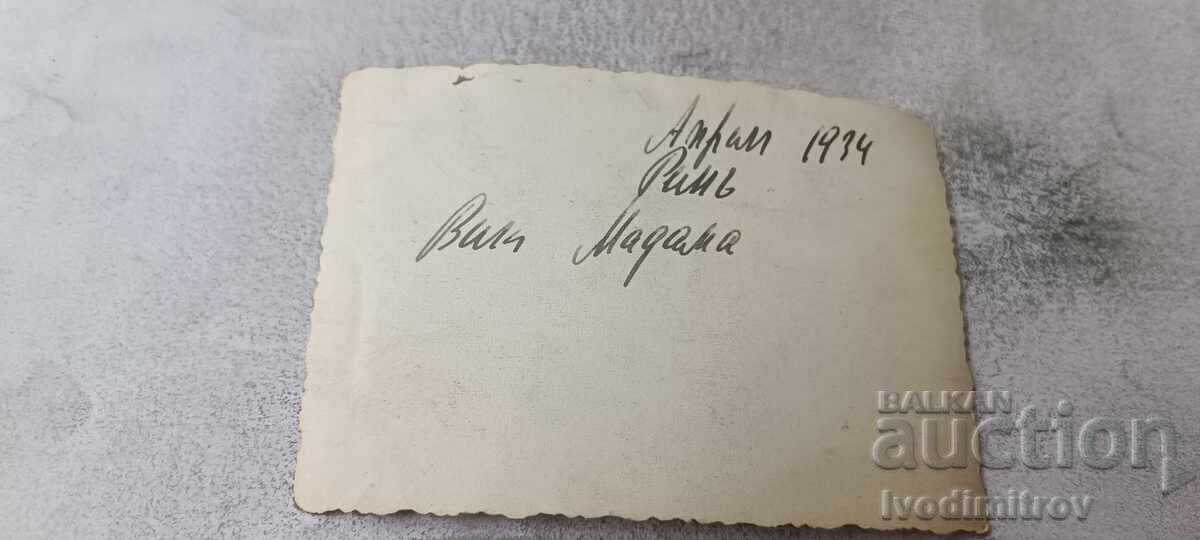 Април 1934
Римъ
Вила Мадама
BALKAN
auction
Ivodimitrov